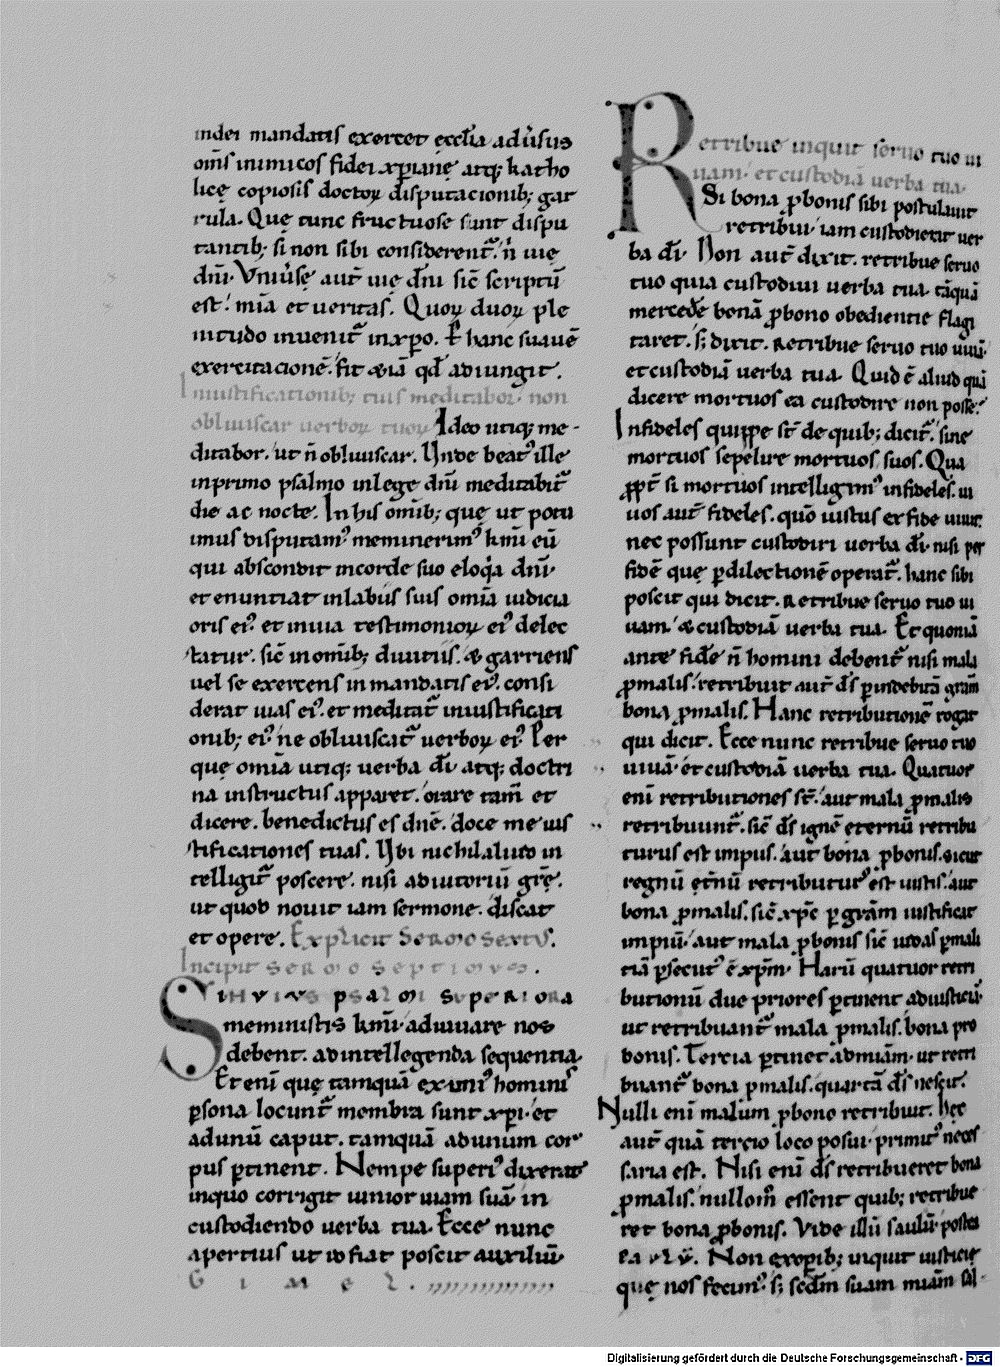 in dei mandatis exercet ecclia adusus
oms inimicos fidei xpiane atq; katho
lice copiosis doctoꝝ disputacionib; gar
rula. Que tunc fructuose sunt dispu
tantib; si non sibi considerent̄. n̄ uie
dn̄i. Vniuse aut̄ uie dn̄i sic̄ scriptū
est. mia et ueritas. Quoꝝ duoꝝ ple
nitudo inuenit̄ inxpo. Per hanc suauē
exercitacionē. fit & iā qd̄ adiungit.
In iustificationib; tuis meditabor. non
obliuiscar uerboꝝ tuoꝝ. Ideo utiq; me-
ditabor. ut n̄ obliuiscar. Unde beat᾽ ille
inprimo psalmo inlege dn̄i meditabit̄
die ac nocte. In his omib; que ut potu
imus disputam᾽ meminerim᾽ kmi eū
qui abscondit incorde suo eloqa dn̄i.
et enuntiat inlabiis suis omia iudicia
oris ei᾽. et inuia testimonioꝝ ei᾽ delec
tatur. sic̄ in omib; diuitiis. & garriens
uel se exercens in mandatis ei᾽. consi
derat uias ei᾽. et meditat̄ iniustificati
onib; ei᾽. ne obliuiscat̄ uerboꝝ ei᾽. Per
que omia utiq; uerba di atq; doctri
na instructus apparet. orare tam̄ et
dicere. benedictus es dne. doce me ius
tificationes tuas. Ubi nichil aliud in
telligit̄ poscere. nisi adiutoriū grę.
ut quod nouit iam sermone. discat
et opere. Explicit Sermo Sextus.
Incipit sermo septimus.
Si huius psalmi superiora
meministis kmi. adiuuare nos
debent. ad intellegenda sequentia.
Et eni que tamquā ex uni᾽ hominis
ꝑsona locunt̄ membra sunt xpi. et
adunū caput. tamquā adunum cor
pus ꝑtinent. Nempe superi᾽ dixerat
inquo corrigit iunior uiam suā. in
custodiendo uerba tua. Ecce nunc
apertius ut id fiat poscit auxiliū.
Gimel.
Retribue inquit seruo tuo ui
uam. et custodiā uerba tua.
Si bona ꝓbonis sibi postulauit
retribui. iam custodierit uer
ba di. Non aut̄ dixit. retribue seruo
tuo quia custodiui uerba tua. tāquā
mercede bonā ꝓbono obedientie flagi
taret. s; dixit. Retribue seruo tuo uiuā.
et custodiā uerba tua. Quid ē aliud quā
dicere mortuos ea custodire non posse.
Infideles quippe st̄ de quib; dicit̄. sine
mortuos sepelire mortuos suos. Qua
ꝓpt̄ si mortuos intelligim᾽ infideles. ui
uos aut̄ fideles. quō iustus ex fide uiuit.
nec possunt custodiri uerba di. nisi per
fidē que ꝑdilectionē operat̄. hanc sibi
poscit qui dicit. Retribue seruo tuo ui
uam. & custodiā uerba tua. Et quoniā
ante fide n̄ homini debent̄ nisi mala
ꝓmalis. retribuit aut̄ ds ꝑindebitā grām
bona ꝓmalis. Hanc retributionē rogat
qui dicit. Ecce nunc retribue seruo tuo
uiuā. et custodiā uerba tua. Quatuor
eni retributiones st̄. aut mala ꝓmalis
retribuunt̄. sic̄ ds ignē eternū retribu
turus est impiis. aut bona ꝓbonis. sicut
regnū et̄nū retributur᾽ est iustis. aut
bona ꝓmalis. sic̄ xpc ꝑgrām iustificat
impiū. aut mala ꝓbonis sic̄ iudas ꝑmali
tiā ꝑsecut᾽ ē xpm. Harū quatuor retri
butionū due priores ꝑtinent adiusticiā.
ut retribuant̄ mala ꝓmalis. bona pro
bonis. Tercia ꝑtinet admiam. ut retri
buant̄ bona ꝓmalis. quartā ds nescit.
Nulli eni malum ꝓbono retribuit. Hec
aut̄ quā tercio loco posui. primit᾽ neces
saria est. Nisi eni ds retribueret bona
ꝓmalis. nullom̄ essent quib; retribue
ret bona ꝓbonis. Vide illū saulū. postea
paulū. Non exoperib; inquit iusticie
que nos fecim᾽. s; scdm suam miam sal-
Digitalisierung gefördert durch die Deutsche Forschungsgemeinschaft - DFG